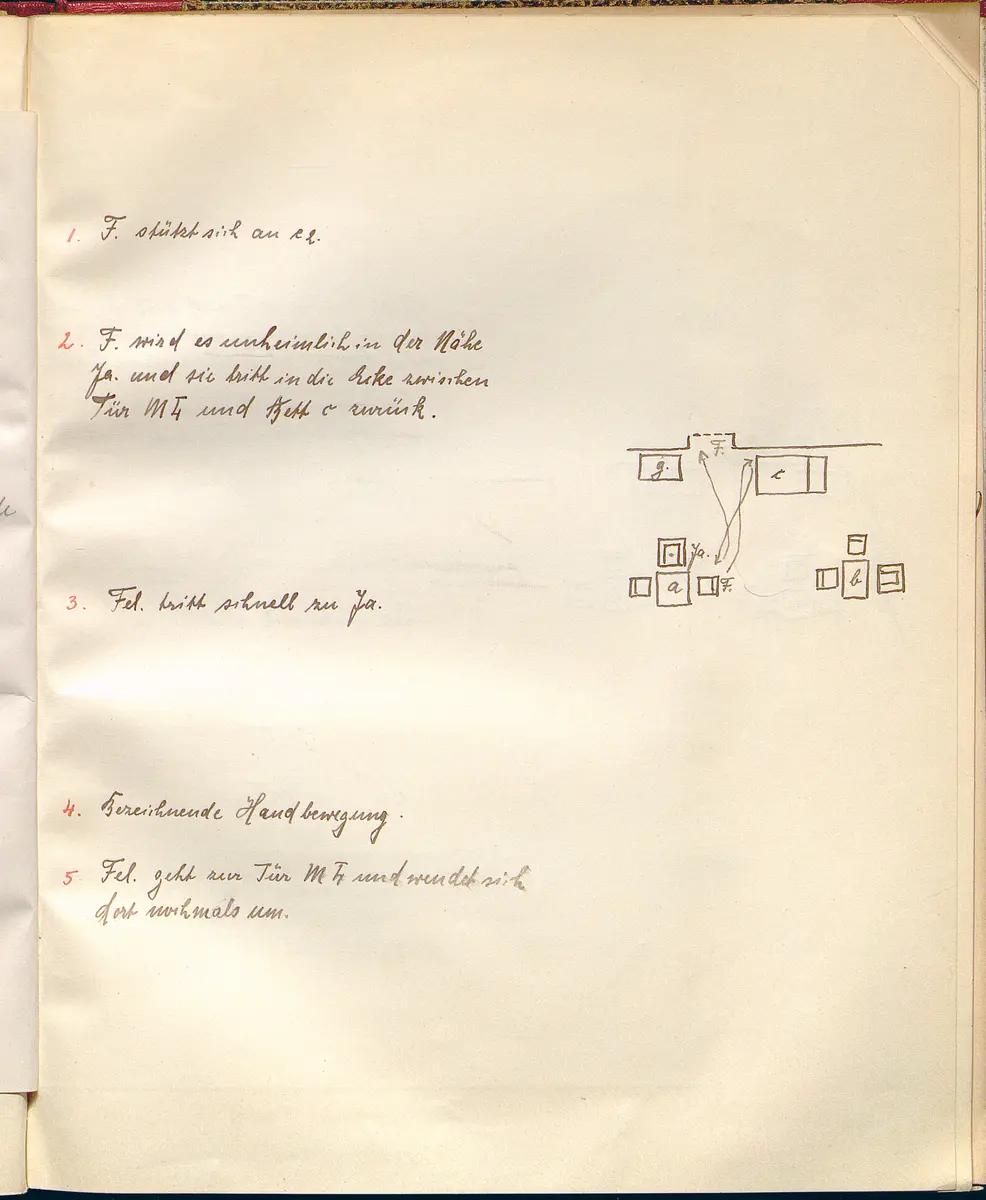 1. F. stützt sich an c2.
2. F. wird es unheimlich in der Nähe
Ja. und sie tritt in die Ecke zwischen
Tür M und Bett c zurück.
F.
g.
c
Ja.
a
F.
b
3. Fel. tritt schnell zu Ja.
4. Bezeichnende Handbewegung.
5 Fel. geht zur Tür M und wendet sich
dort nochmals um.